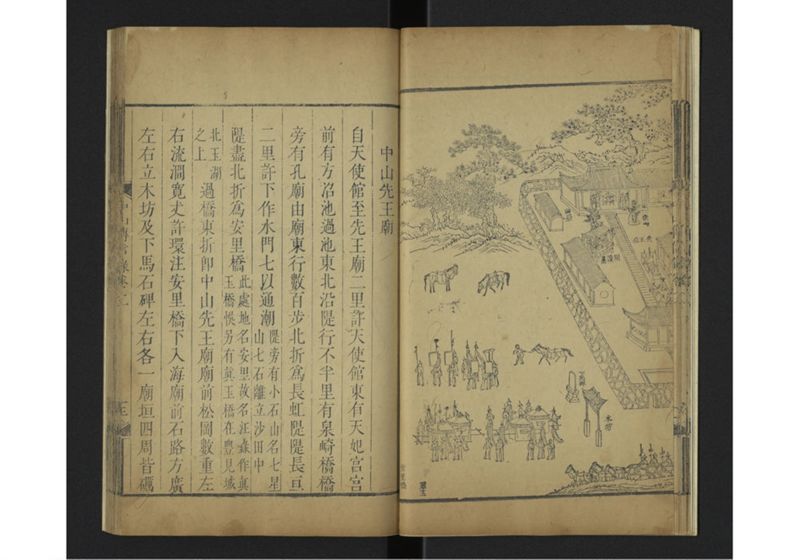 中山先王廟
自天使館至先王廟二里許天使館東有天妃宮宮
前有方沼池過池東北沿隄行不半里有泉崎橋橋
旁有孔廟由廟東行數百步北折爲長虹隄隄長亘
二里許下作水門七以通潮隄旁有小石山名七星山七石離立沙田中
隄盡北折爲安里橋此處地名安里故名汪錄作眞玉橋悞另有眞玉橋在豐見城
北玉湖之上過橋東折卽中山先王廟廟前松岡數重左
右流澗寬丈許環注安里橋下入海廟前石路方廣
左右立木坊及下馬石碑左右各一廟垣四周皆礪
木坊